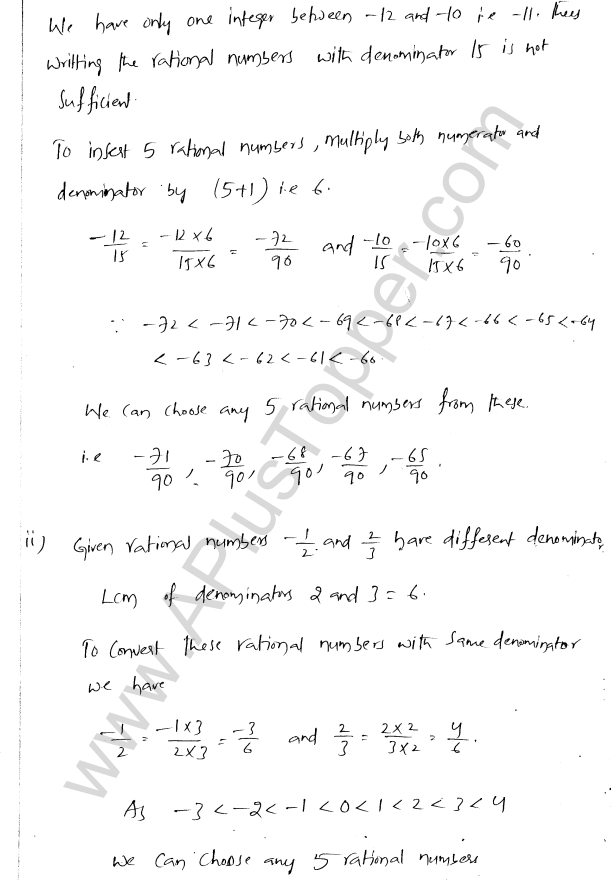 We have only one integer between -12 and -10 i.e -11. Thus
writting the rational numbers with denominator 15 is not
sufficient.
To insert 5 rational numbers, multiply both numerator and
denominator by (5+1) i.e 6.
-12/15 = -12×6/15×6 = -72/90 and -10/15 = -10×6/15×6 = -60/90.
∵ -72 < -71 < -70 < -69 < -68 < -67 < -66 < -65 < -64
< -63 < -62 < -61 < -60.
We can choose any 5 rational numbers from these.
i.e -71/90, -70/90, -68/90, -67/90, -65/90.
ii) Given rational numbers -1/2 and 2/3 have different denominator
Lcm of denominators 2 and 3 = 6.
To convert these rational numbers with same denominator
we have
-1/2 = -1×3/2×3 = -3/6 and 2/3 = 2×2/3×2 = 4/6.
As -3 < -2 < -1 < 0 < 1 < 2 < 3 < 4
We can choose any 5 rational numbers
www.APlusTopper.com